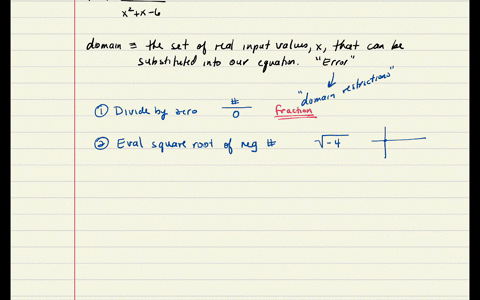 x²+x-6
domain ≡ the set of real input values, x, that can be
substituted into our equation. "Error"
"domain restrictions"
① Divide by zero #/0 fraction
② Eval square root of neg # √-4